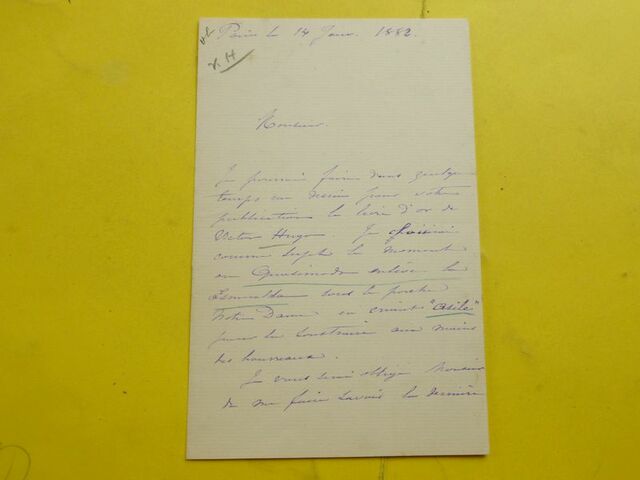 Paris le 14 Janv. 1882.
Monsieur
Je pourrais faire dans quelque
temps un dessin pour votre
publication le livre d'or de
Victor Hugo. Je choisirai
comme sujet le moment
ou Quasimodo enlève la
Esmeralda sous le porche
Notre Dame en criant "asile"
pour la soustraire aux mains
des bourreaux.
Je vous serai obligé Monsieur
de me faire savoir la dernière